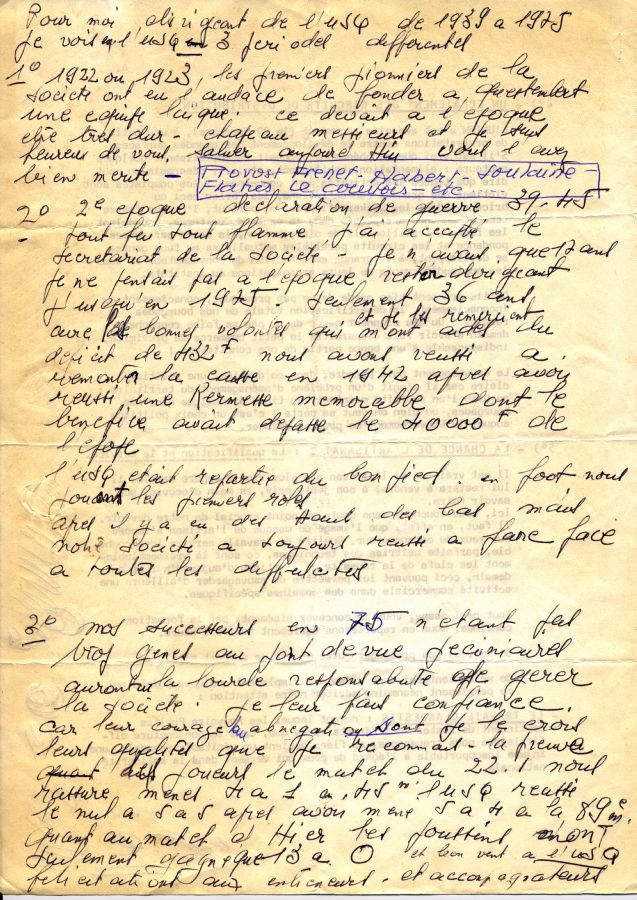 Pour moi dirigeant de l'USQ de 1939 a 1975
je vois en l'USQ 3 periodes differentes
1° 1922 ou 1923, les premiers pionniers de la
Societé ont eu l'audace de fonder a Questembert
une equipe laique. ce devait a l'epoque
etre tres dur - chapeau messieurs et je suis
heureux de vous saluer aujourd Hui vous l'avez
bien merité -
Provost Frenet - Habert - Soulaine -
Flahes Le couvois - etc
2° 2e epoque declaration de guerre 39-45
tout feu tout flamme j'ai accepté le
Secretariat de la Societe - je n'avais que 17 ans
je ne pensais pas a l'epoque rester dirigeant
jusqu'en 1975. Seulement 36 ans
avec les bonnes volontés qui m'ont aidé du
et je les remercient
deficit de 432 F nous avons reussi a
remonter la caisse en 1942 apres avoir
reussi une Kermesse memorable dont le
benefice avait depassé le 40000 F de
l'epoque
l'USQ etait repartie du bon pied. en foot nous
jouant les premiers roles
apres il y a eu des Haut des bas mais
notre Societé a toujours reussi a faire face
a toutes les difficultés
3° mos successeurs en 75 n'etant pas
trop genés au point de vue pecuniaires
auront la lourde responsabilité de gerer
la Societé. je leur fais confiance.
car leur courage abnegation sont je le crois
leurs qualités que je reconnait - la preuve
joueurs le match du 22.1 nous
rassure menés 4 a 1 a 45 m l'USQ reussi
le nul a 5 a 5 apres avoir mené 5 a 4 a la 89e m.
Quant au match d Hier les poussins n'ont
seulement gagné que 13 a 0 et bon vent a l'USQ
felicitations aux entraineurs. et accompagnateurs